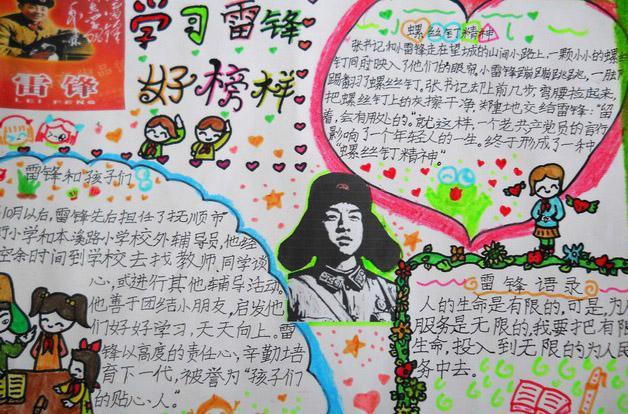 雷锋
LEI FENG
学习雷锋
好榜样
螺丝钉精神
张书记和小雷锋走在望城的山间小路上,一颗小小的螺丝
钉同时映入了他们的眼帘,小雷锋蹦蹦跳跳,一脚
踢翻了螺丝钉,张书记却上前几步弯腰捡起来,
把螺丝钉上的灰擦干净,郑重地交给雷锋:“留
着,会有用处的。”就这样,一个老共产党员的言行
影响了一个年轻人的一生。终于形成了一种
“螺丝钉精神”。
雷锋和孩子们
10月以后,雷锋先后担任了抚顺市
小学和本溪路小学校外辅导员,他经
空余时间到学校去找教师、同学谈
心,或进行其他辅导活动,
他善于团结小朋友,启发他
们好好学习,天天向上。雷
锋以高度的责任心,辛勤培
育下一代,被誉为“孩子们
的贴心人。”
雷锋语录
人的生命是有限的,可是,为人
服务是无限的,我要把有限
生命,投入到无限的为人民
务中去。